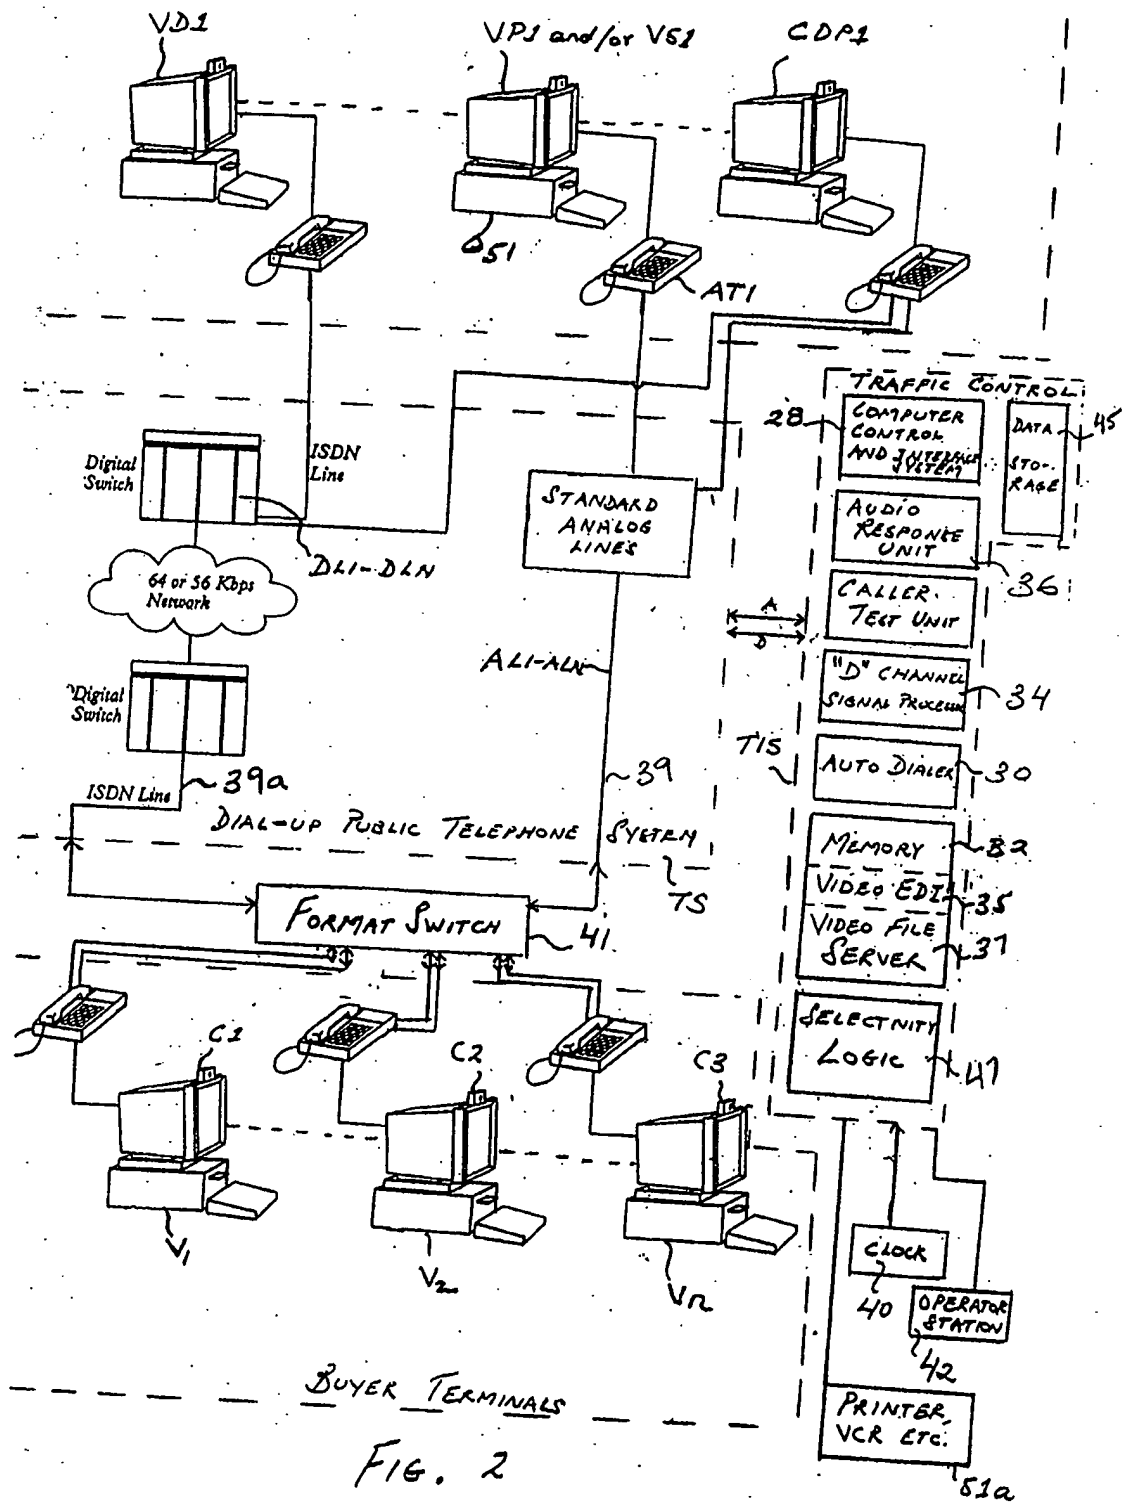 VD1
VP1 and/or VS1
CDP1
51
AT1
TRAFFIC CONTROL
28
COMPUTER
CONTROL
AND INTERFACE
SYSTEM
DATA
STO-
RAGE
45
Digital
Switch
ISDN
Line
STANDARD
ANALOG
LINES
AUDIO
RESPONSE
UNIT
36
DL1-DLN
64 or 56 Kbps
Network
CALLER
TEST UNIT
A
D
AL1-ALN
"D" CHANNEL
SIGNAL PROCESSOR
34
Digital
Switch
T1S
AUTO DIALER
30
39a
39
ISDN Line
DIAL-UP PUBLIC TELEPHONE SYSTEM
TS
MEMORY
32
VIDEO EDI
35
VIDEO FILE
SERVER
37
FORMAT SWITCH
41
SELECTIVITY
LOGIC
47
C1
C2
C3
V1
V2
Vn
CLOCK
40
OPERATOR
STATION
42
BUYER TERMINALS
PRINTER,
VCR ETC.
51a
FIG. 2